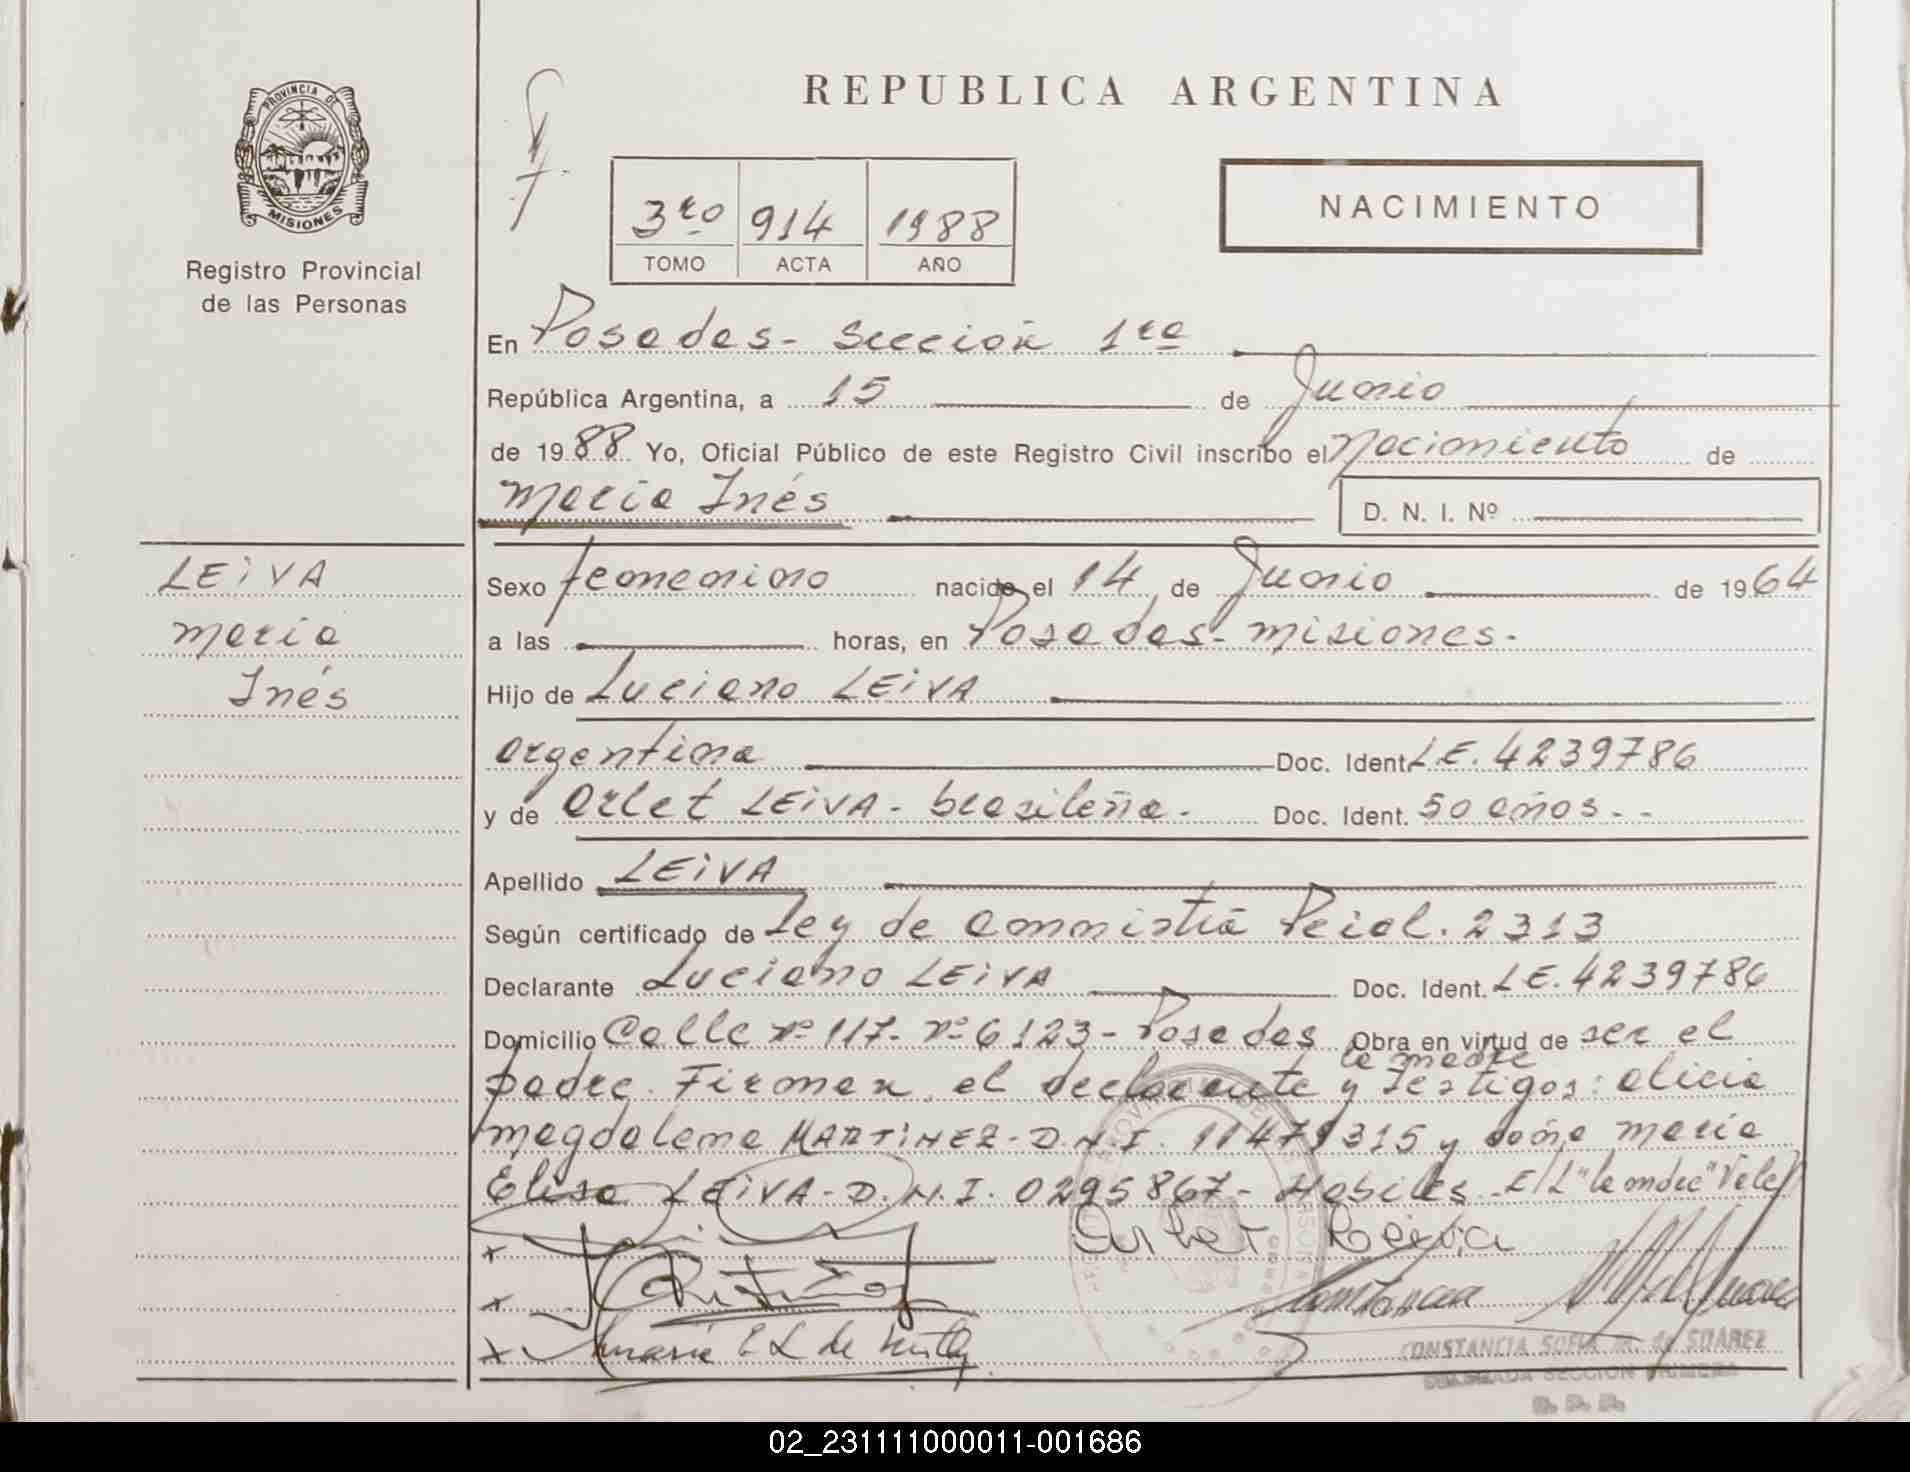 PROVINCIA DE
MISIONES
Registro Provincial
de las Personas
REPUBLICA ARGENTINA
3ro 914 1988
TOMO ACTA AÑO
NACIMIENTO
En Posadas - Sección 1ra
República Argentina, a 15 de Junio
de 1988 Yo, Oficial Público de este Registro Civil inscribo el Nacimiento de
María Inés D. N. I. Nº
LEIVA
María
Inés
Sexo femenino nacido el 14 de Junio de 1964
a las horas, en Posadas - Misiones.
Hijo de Luciano LEIVA
Argentina Doc. Ident. L.E. 4239786
y de Orlet LEIVA - brasileña. Doc. Ident. 50 años. -
Apellido LEIVA
Según certificado de Ley de Amnistía Pcial. 2313
Declarante Luciano LEIVA Doc. Ident. L.E. 4239786
Domicilio Calle Nº 117 - Nº 6123 - Posadas Obra en virtud de ser el
la madre
padre. Firman el declarante y Testigos: Alicia
Magdalena MARTINEZ - D.N.I. 11479315 y doña María
Elisa LEIVA - D.N.I. 0295867 - Habiles - E/L "la madre" Vale
x
x
x María E L de
Constancia
CONSTANCIA SOFIA M. de SUAREZ
DELEGADA SECCION PRIMERA
R. P. P.
02_231111000011-001686